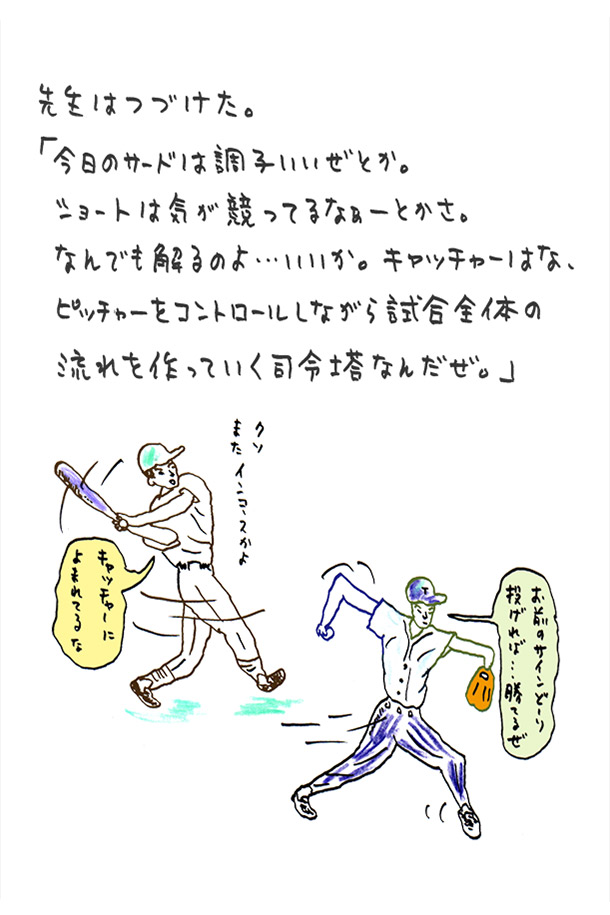 先生はつづけた。
「今日のサードは調子いいぜとか。
ショートは気が競ってるなぁーとかさ。
なんでも解るのよ…いいか。キャッチャーはな、
ピッチャーをコントロールしながら試合全体の
流れを作っていく司令塔なんだぜ。」
クソ
また インコースかよ
キャッチャーに
よまれてるな
お前のサインどーり
投げれば…勝てるぜ
T